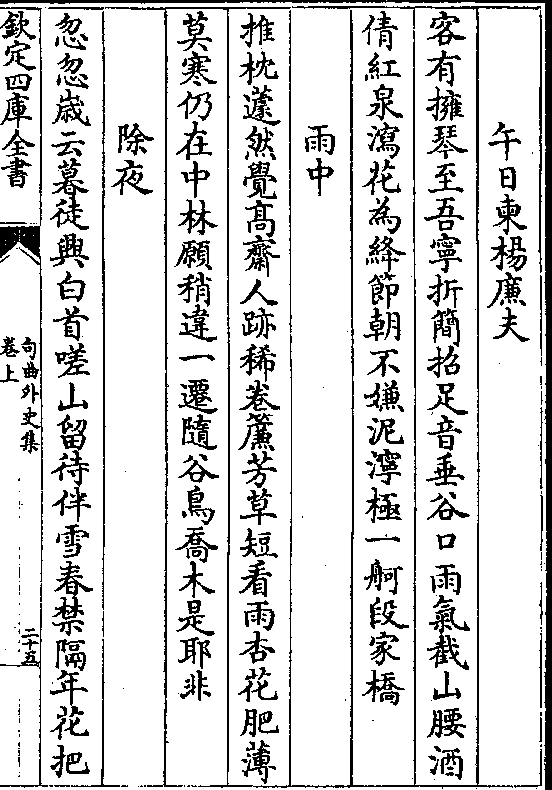 午日柬楊廉夫
客有擁琴至吾寧折簡招足音垂谷口雨氣截山腰酒
倩紅泉瀉花為絳節朝不嫌泥濘極一舸段家橋
雨中
推枕蘧然覺高齋人跡稀卷簾芳草短看雨杏花肥薄
莫寒仍在中林願稍違一遷隨谷鳥喬木是耶非
除夜
忽忽歳云暮徒興白首嗟山留待伴雪春禁隔年花把
欽定四庫全書
句曲外史集
卷上
二十五